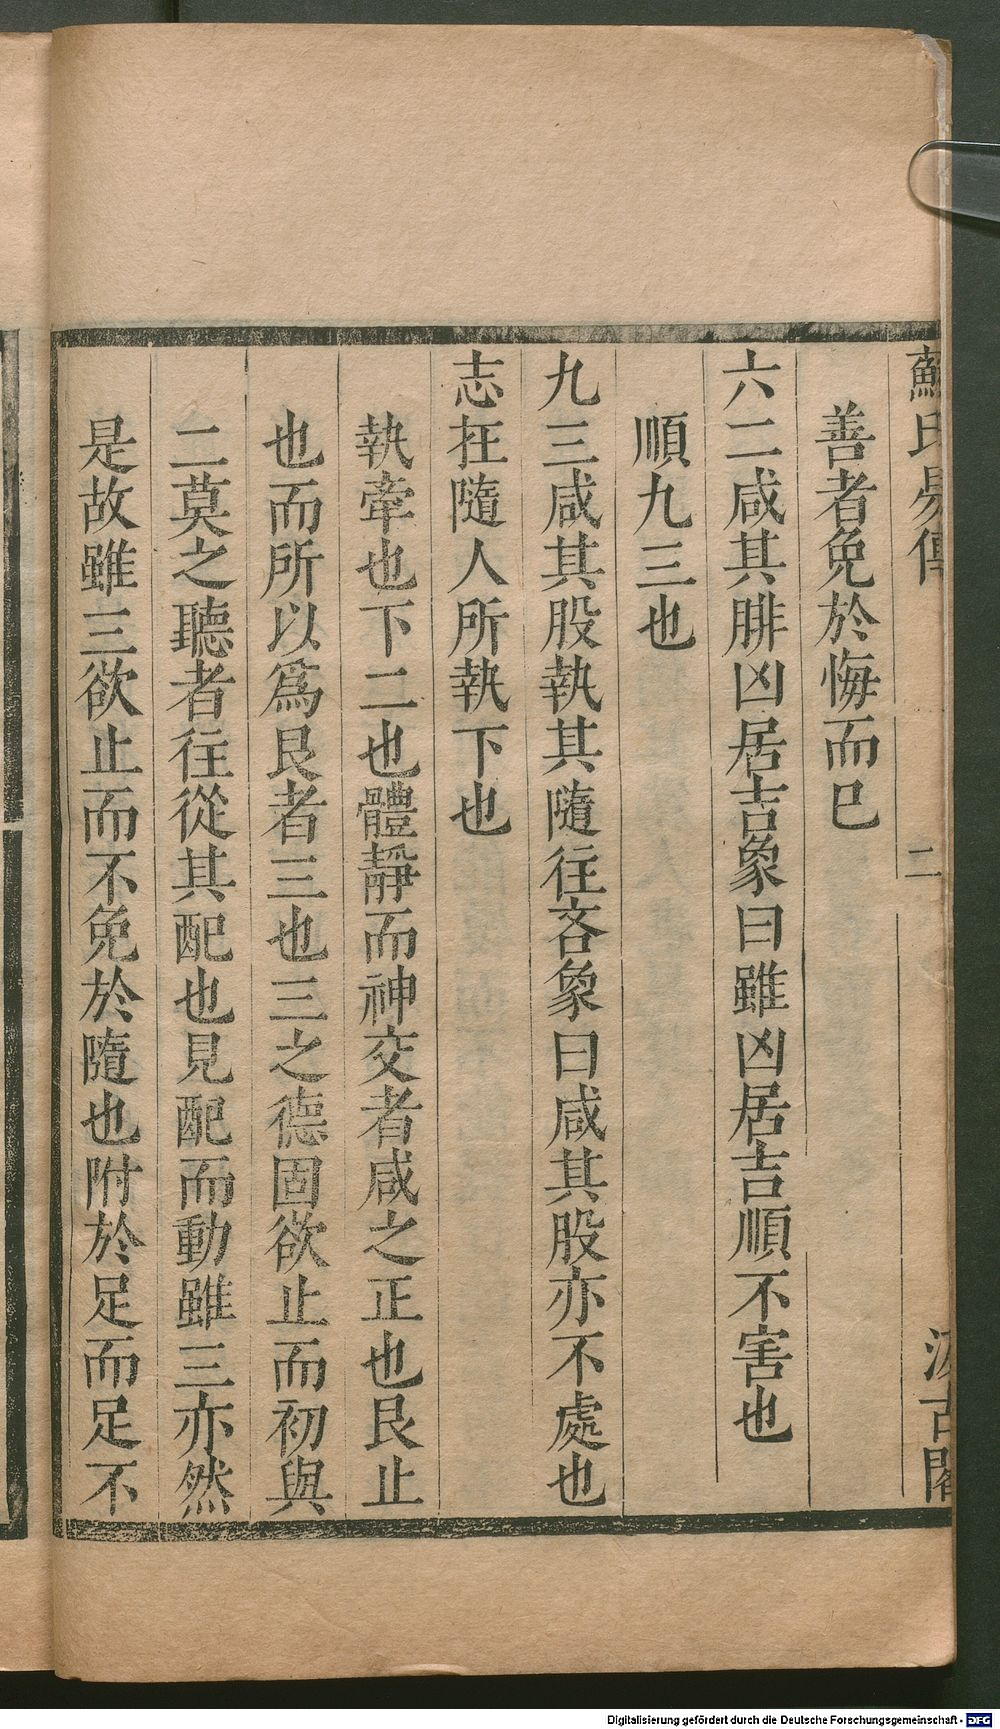 蘇氏易傳 二 汲古閣
善者免於悔而已
六二咸其腓凶居吉象曰雖凶居吉順不害也
順九三也
九三咸其股執其隨往吝象曰咸其股亦不處也
志在隨人所執下也
執牽也下二也體靜而神交者咸之正也艮止
也而所以爲艮者三也三之德固欲止而初與
二莫之聽者往從其配也見配而動雖三亦然
是故雖三欲止而不免於隨也附於足而足不
Digitalisierung gefördert durch die Deutsche Forschungsgemeinschaft - DFG